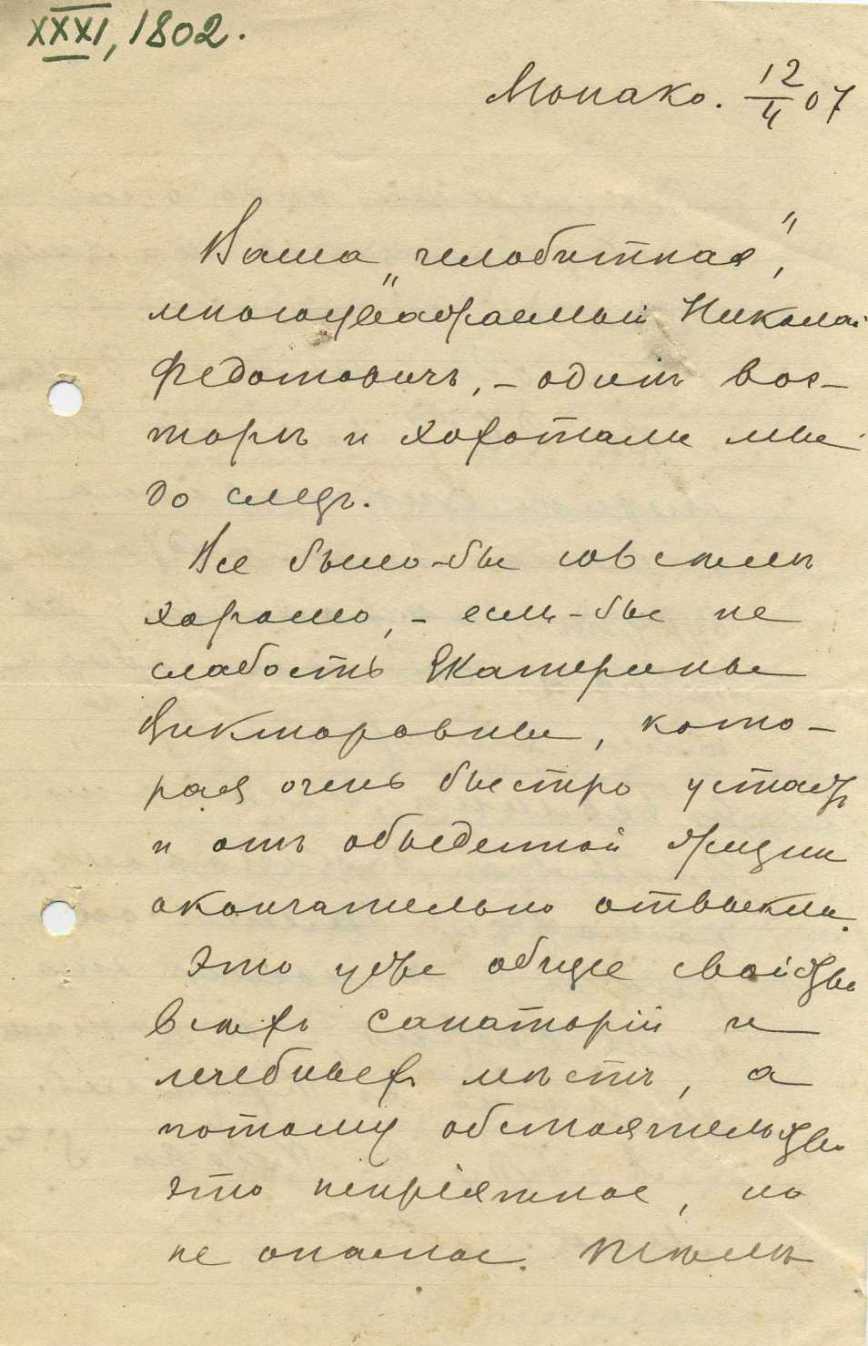 XXXI, 1802.
Монако. 12/4 07
Ваша „челобитная",
многоуважаемый Николай
Федотовичъ, – одинъ вос-
торгъ и хохотали мы
до слезъ.
Все было-бы совсѣмъ
хорошо, – если-бы не
слабость Екатерины
Викторовны, кото-
рая очень быстро устаетъ
и отъ обыденной жизни
окончательно отвыкла.
Это уже общее свойство
всѣхъ санаторій и
лечебныхъ мѣстъ, а
потому обстоятельство
это непріятное, но
не опасное.